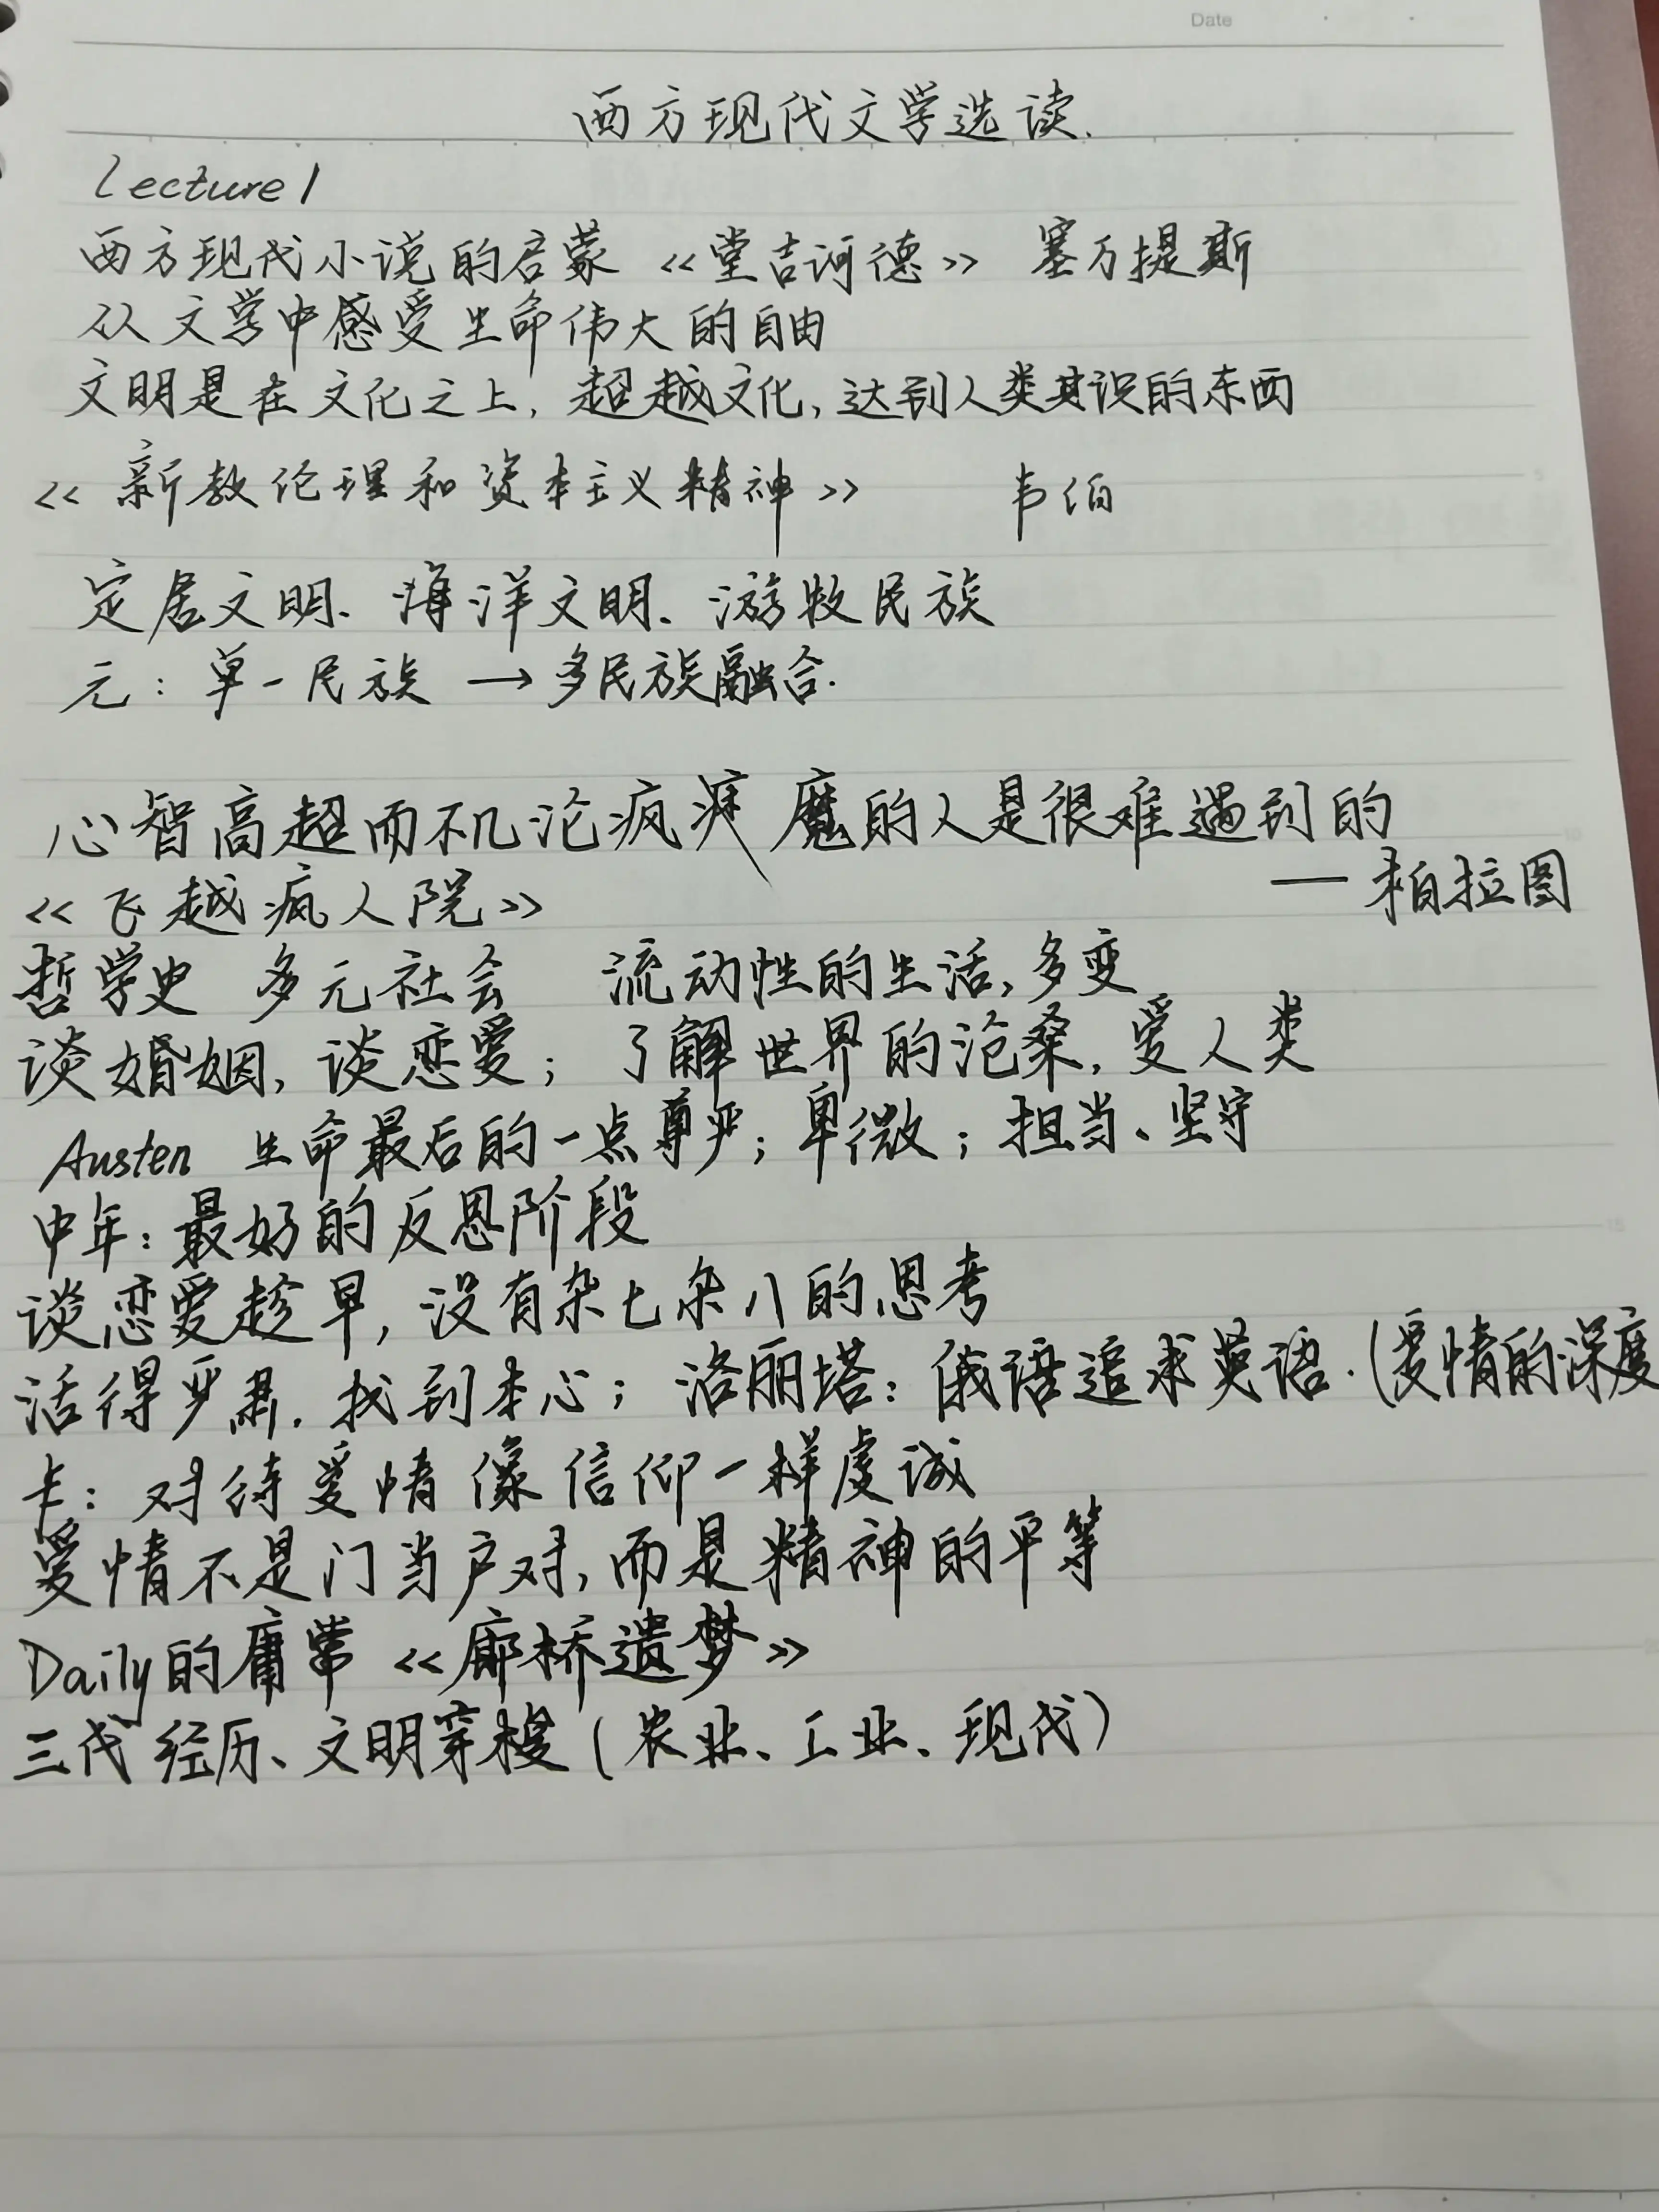 Date
西方现代文学选读.
Lecture 1
西方现代小说的启蒙 《堂吉诃德》 塞万提斯
从文学中感受生命伟大的自由
文明是在文化之上, 超越文化, 达到人类共识的东西
《新教伦理和资本主义精神》 韦伯
定居文明、海洋文明、游牧民族
元: 单一民族 → 多民族融合.
心智高超而不沦疯 魔的人是很难遇到的
《飞越疯人院》 — 柏拉图
哲学史 多元社会 流动性的生活, 多变
谈婚姻, 谈恋爱; 了解世界的沧桑, 爱人类
Austen 生命最后的一点尊严; 卑微; 担当、坚守
中年: 最好的反思阶段
谈恋爱趁早, 没有杂七杂八的思考
活得严肃. 找到本心; 洛丽塔: 俄语追求英语. (爱情的深度
卡: 对待爱情像信仰一样虔诚
爱情不是门当户对, 而是精神的平等
Daily的庸常 《廊桥遗梦》
三代经历、文明穿梭 (农业、工业、现代)